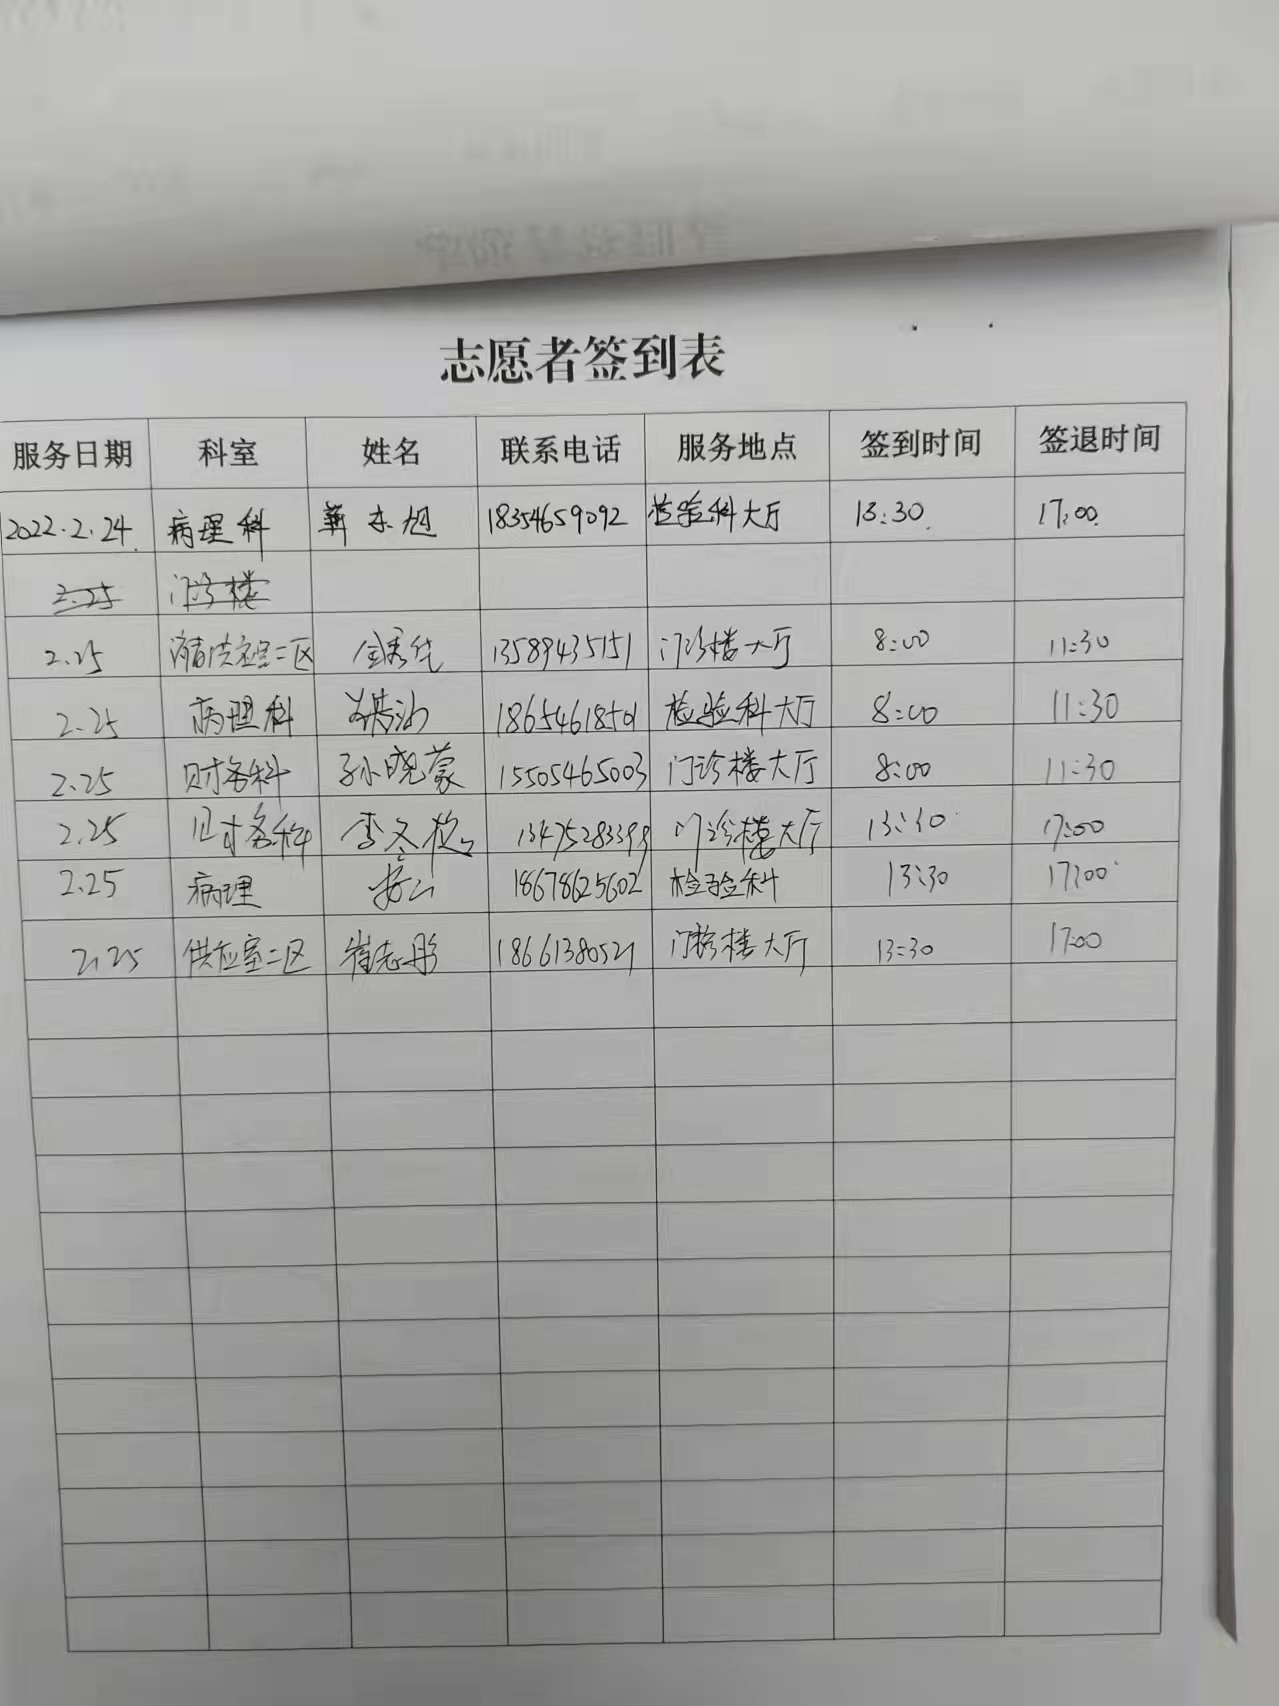 志愿者签到表
服务日期 科室 姓名 联系电话 服务地点 签到时间 签退时间
2022.2.24. 病理科 亦旭 18354659092 检验科大厅 13:30. 17:00.
2.25 门诊楼
2.25 二区 13589435151 门诊楼大厅 8:00 11:30
2.25 病理科 18654618501 检验科大厅 8:00 11:30
2.25 财务科 孙晓蒙 15505465003 门诊楼大厅 8:00 11:30
2.25 财务科 李冬梅 13475283399 门诊楼大厅 13:30 17:00
2.25 病理 18678625602 检验科 13:30 17:00
2.25 供应室二区 崔志彤 18661380521 门诊楼大厅 13:30 17:00